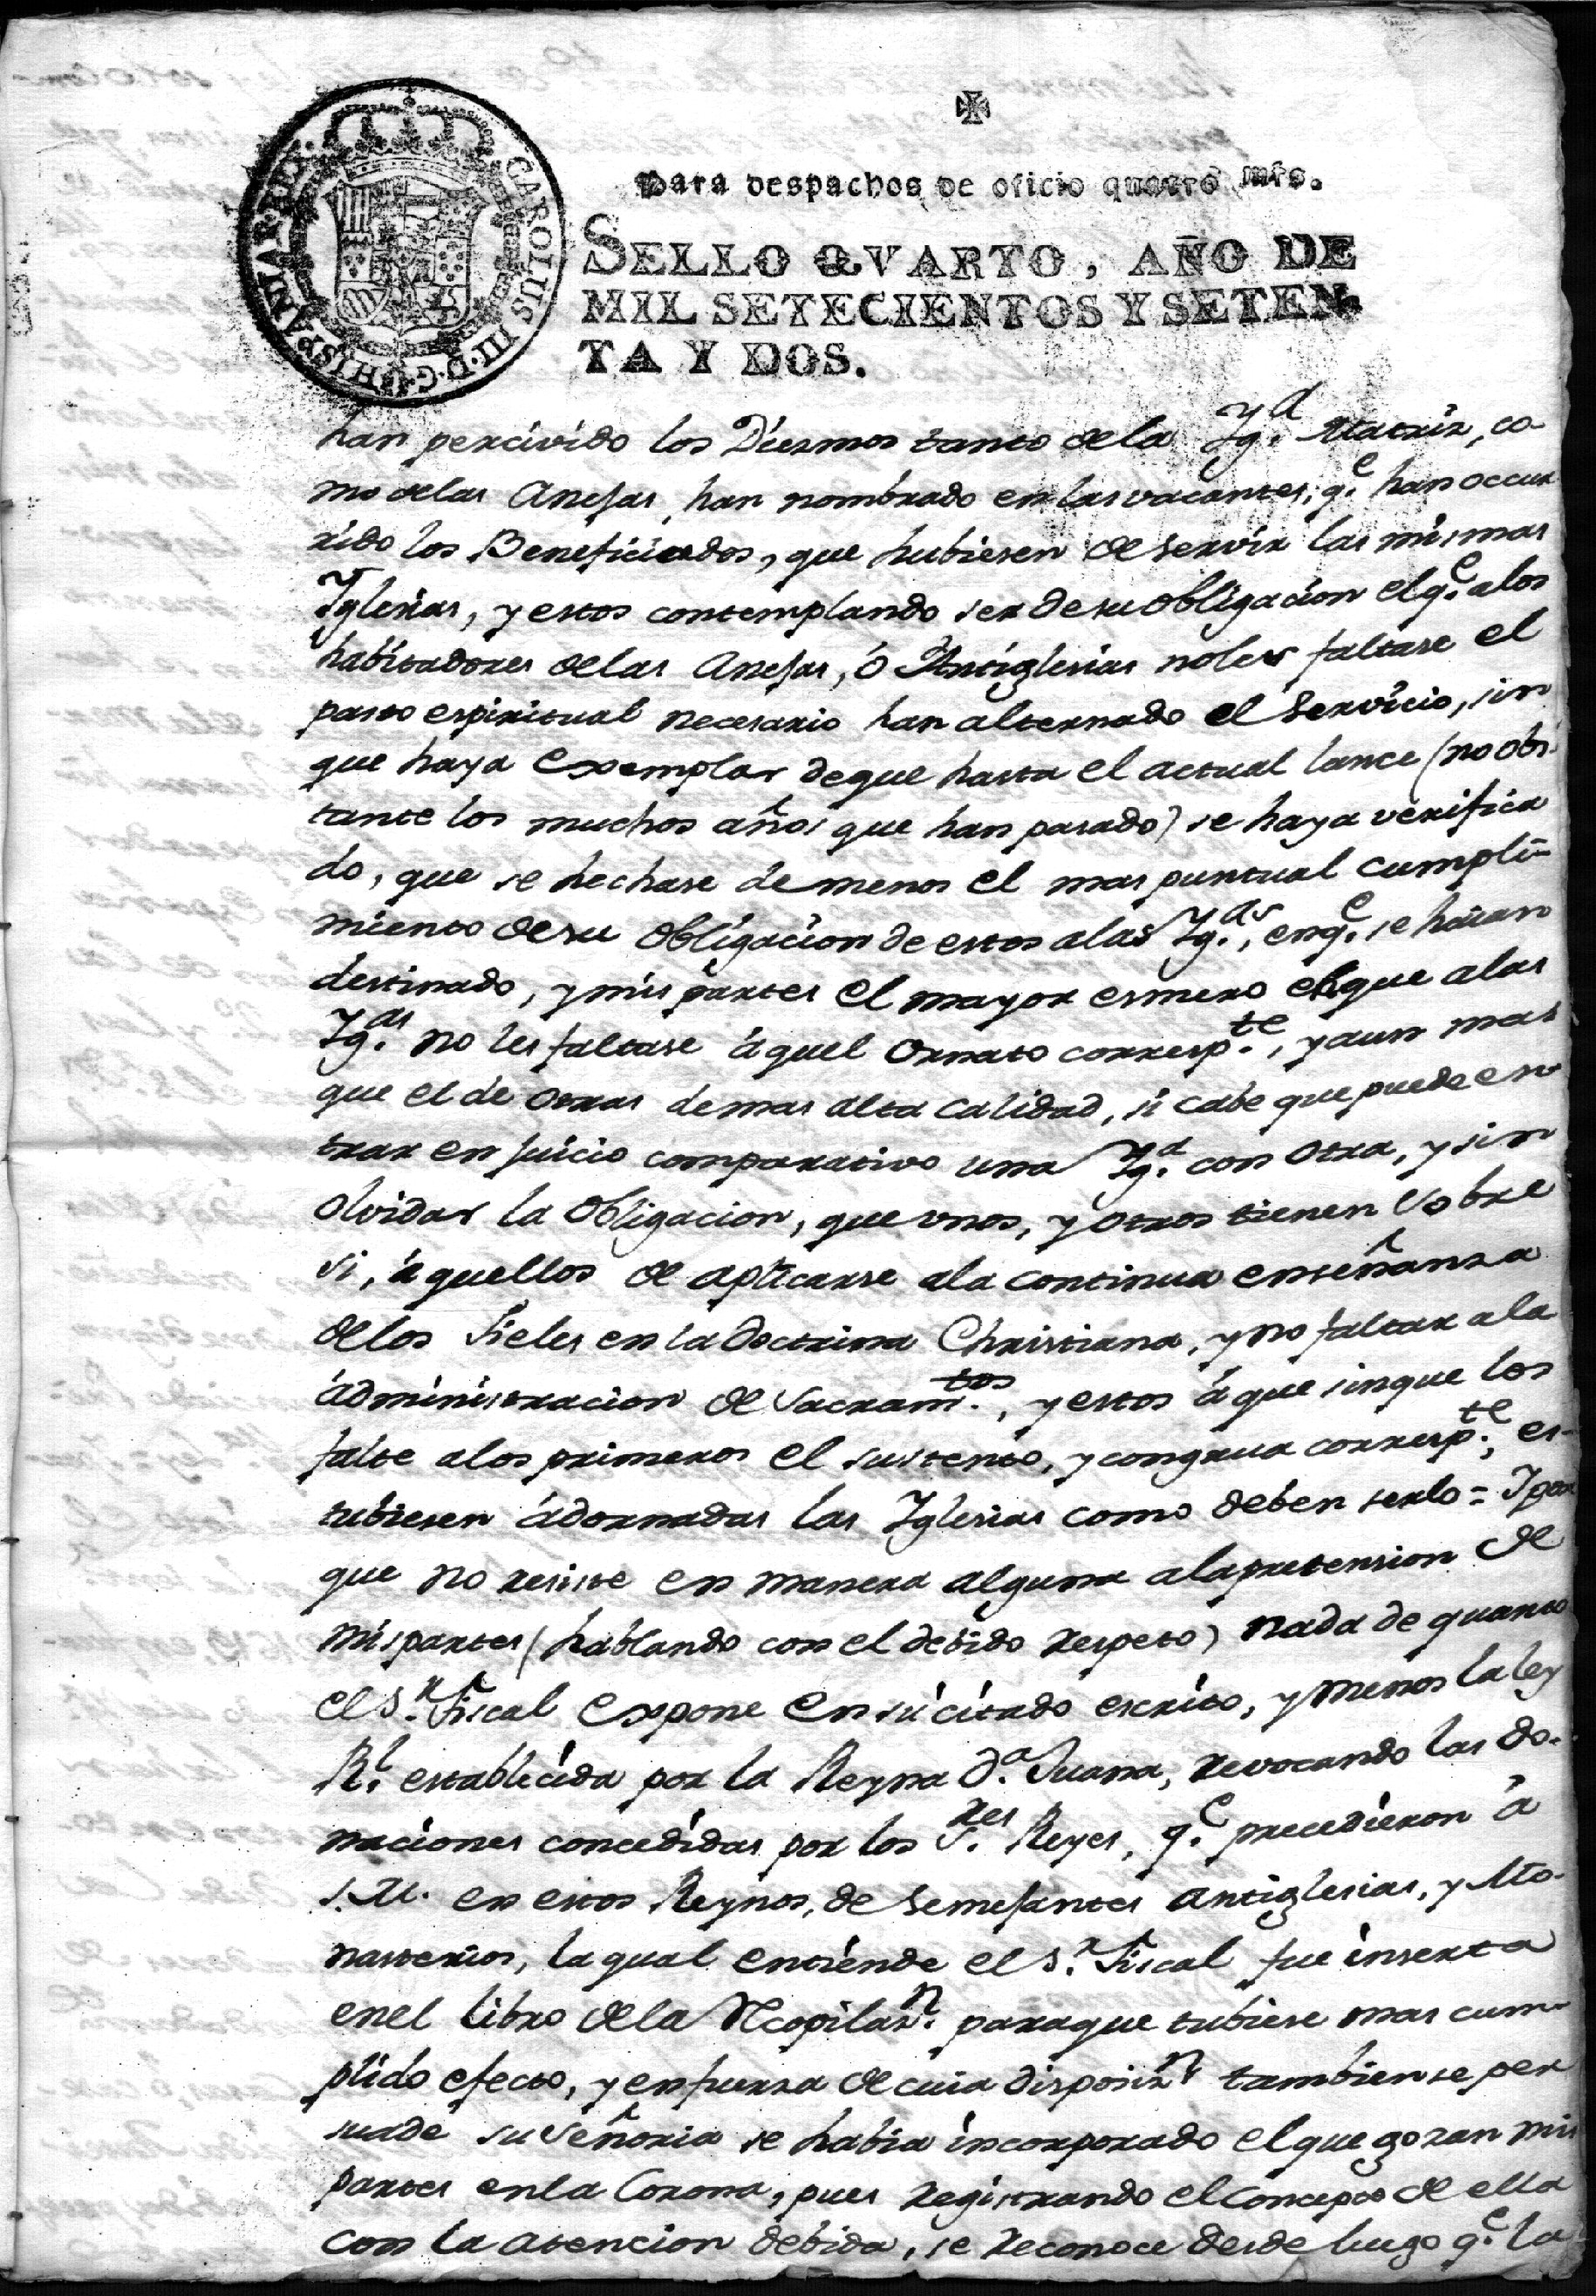 ✠
Para despachos de oficio quatro mrs.
CAROLUS III·D·G·HISPANIAR·REX·
SELLO QVARTO, AÑO DE
MIL SETECIENTOS Y SETEN
TA Y DOS.
han percivido los Diezmos tanto de la Yg.ª Matriz, co-
mo de las Anejas, han nombrado en las vacantes, q.e han occur
rido los Beneficiados, que hubiesen de servir las mismas
Yglesias, y estos contemplando ser de su obligacion el q.e a los
habitadores de las Anejas, ó Antiglesias no les faltase el
pasto espiritual necesario han alternado el Servicio, sin
que haya exemplar de que hasta el actual lance (no obs-
tante los muchos años que han pasado) se haya verifica
do, que se hechase de menos el mas puntual cumpli-
miento de su obligacion de estos a las Yg.as, en q.e se havian
destinado, y mis partes el mayor esmero en que a las
Yg.as no les faltase aquel ornato corresp.te, y aun mas
que el de otras de mas alta calidad, si cabe que puede en-
trar en juicio comparativo una Yg.ª con otra, y sin
olvidar la obligacion, que unos, y otros tienen sobre
si, aquellos de aplicarse a la continua enseñanza
de los Fieles en la Doctrina Christiana, y no faltar a la
administracion de Sacram.tos, y estos á que sin que les
falte a los primeros el sustento, y congrua corresp.te, es-
tubiesen adornadas las Yglesias como deben serlo = Y por
que no resiste en manera alguna a la pretension de
mis partes (hablando con el debido respeto) nada de quanto
el S.r Fiscal expone en su citado escrito, y menos la ley
R.l establecida por la Reyna D.ª Juana, revocando las do-
naciones concedidas por los S.res Reyes, q.e precedieron á
S.M. en estos Reynos, de semejantes antiglesias, y Mo-
nasterios, la qual entiende el S.r Fiscal fue inserta
en el libro de la Recopilaz.n para que tubiese mas cum-
plido efecto, y en fuerza de cuia disposiz.n tambien se per
suade su Señoria se habia incorporado el que gozan mis
partes en la Corona, pues registrando el concepto de ella
con la atencion debida, se reconoce desde luego q.e la